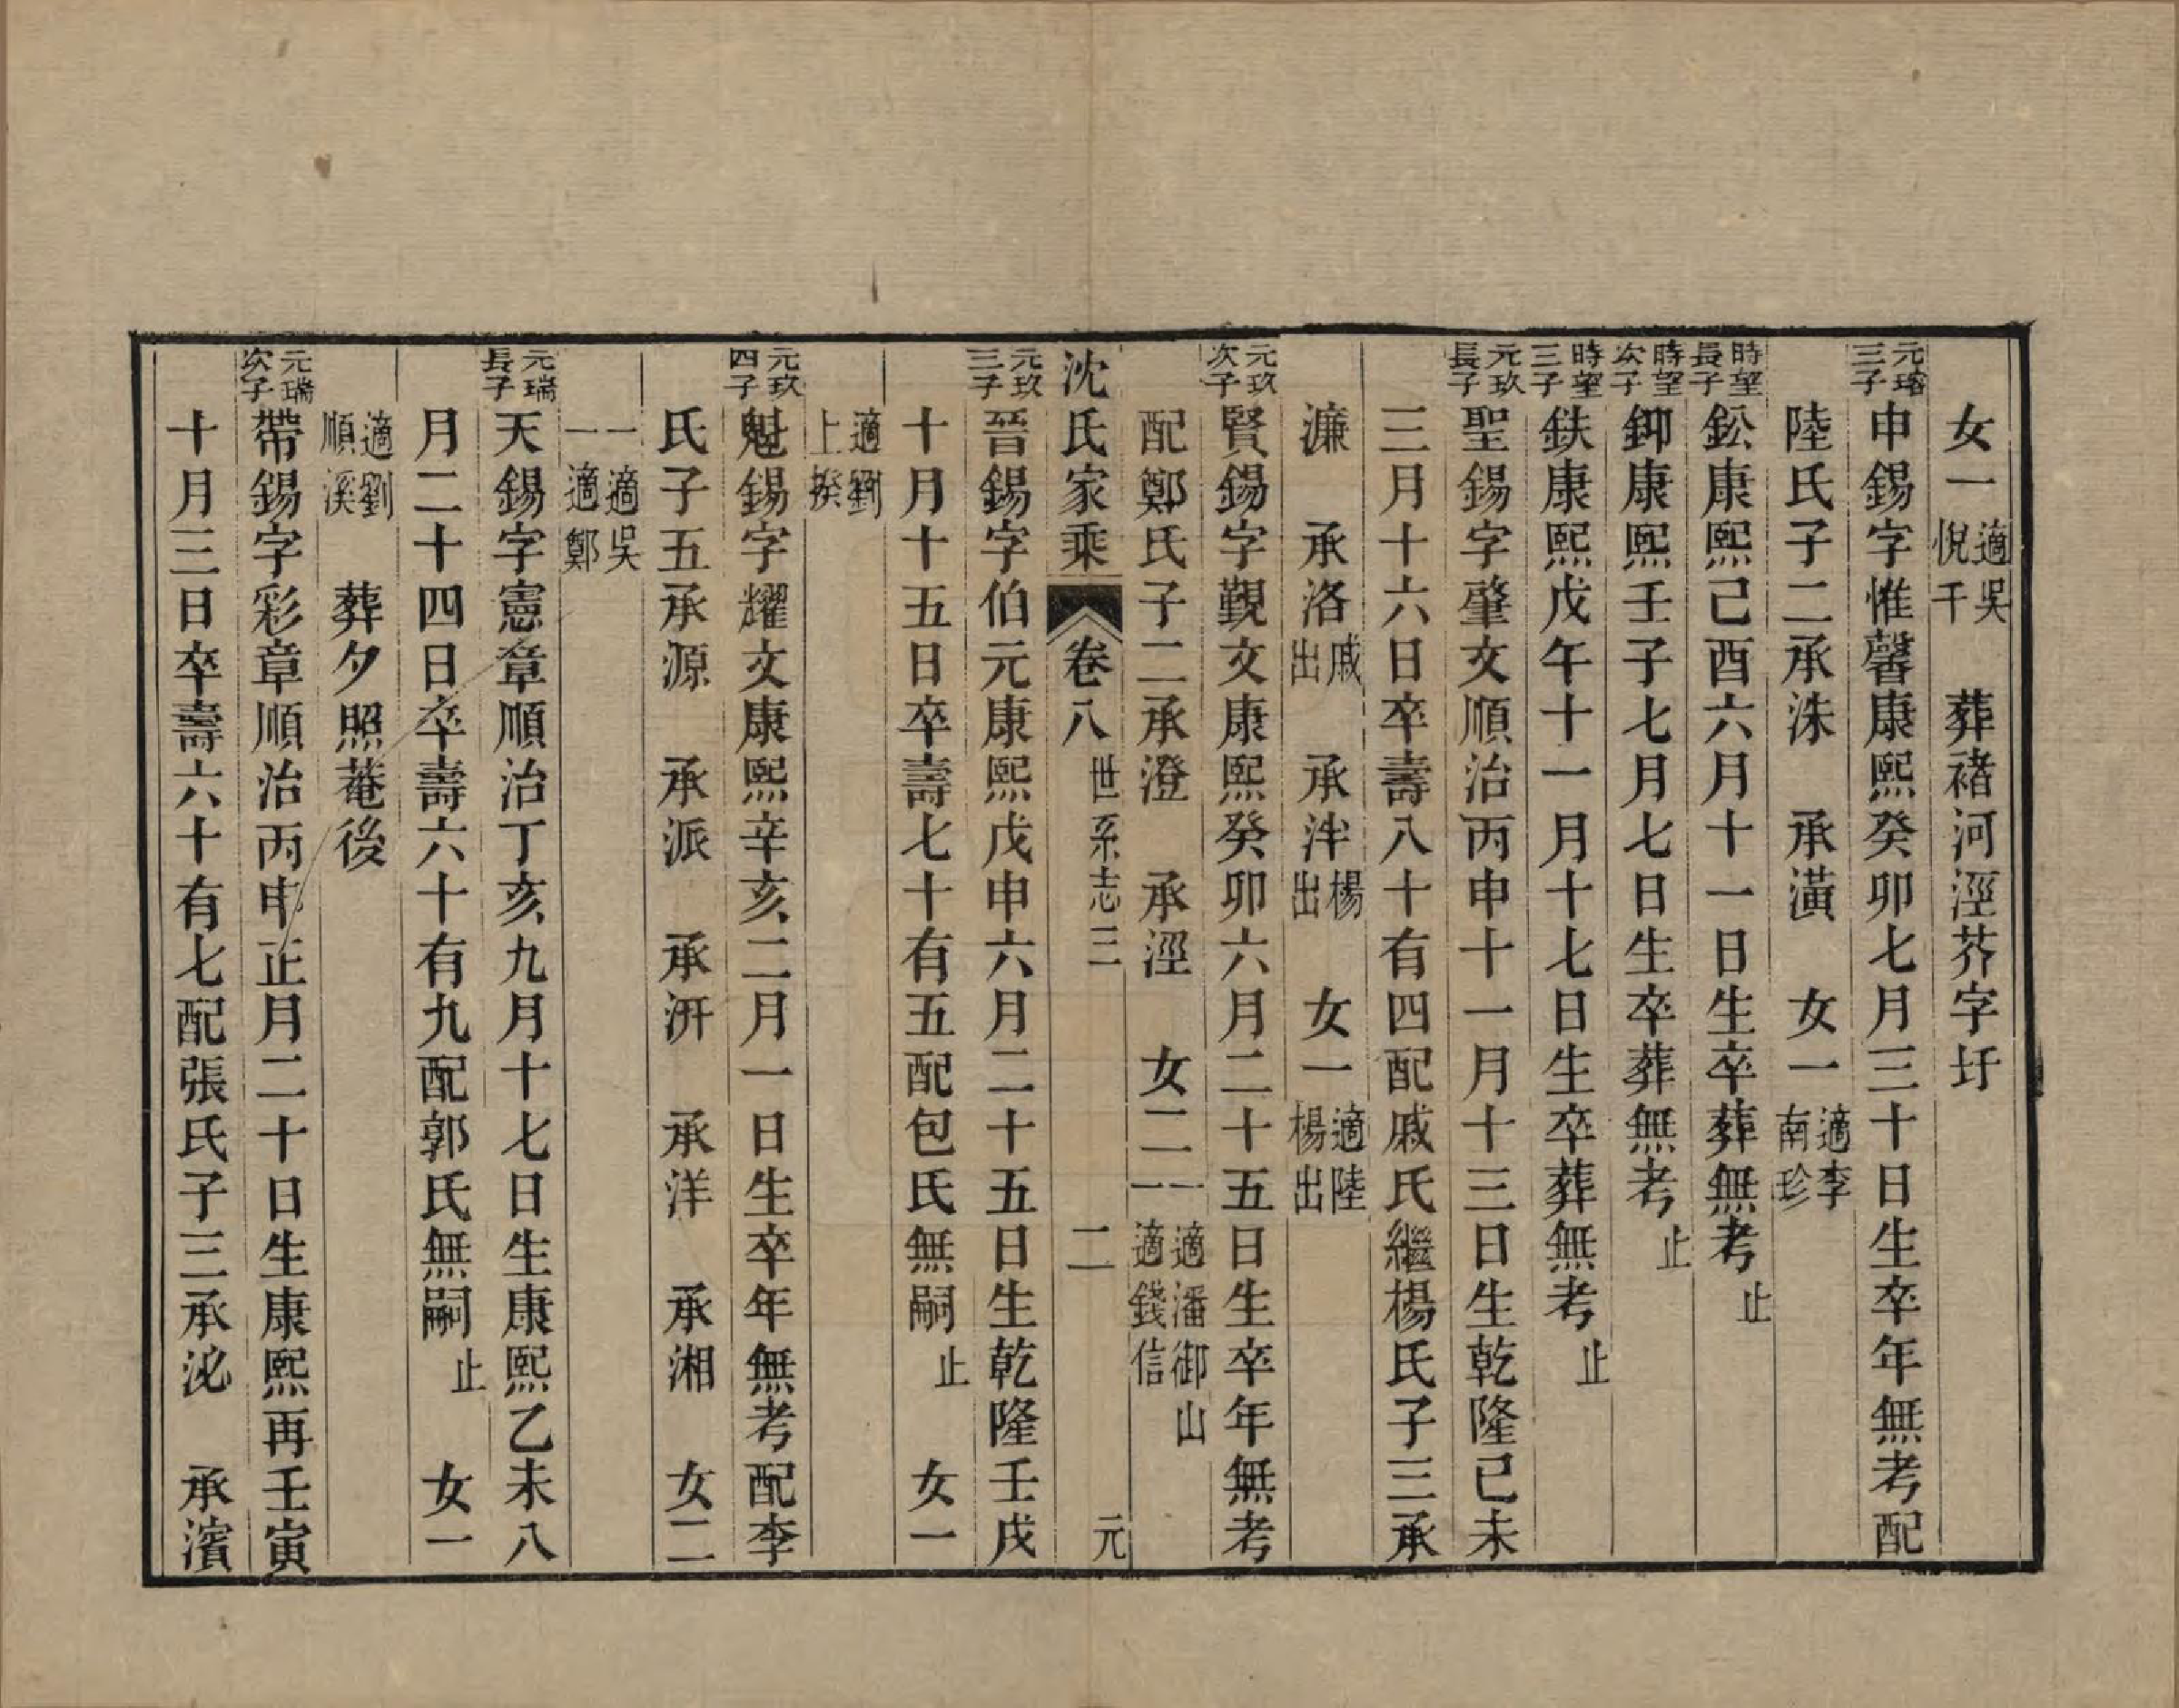 女一適吳悅千　葬禇河涇芥字圩
元瑹三子申錫字惟馨康熙癸卯七月三十日生卒年無考配
陸氏子二承洙　承潢　女一適李南珍
時望長子鈆康熙己酉六月十一日生卒葬無考止
時望次子鉚康熙壬子七月七日生卒葬無考止
時望三子鈇康熙戊午十一月十七日生卒葬無考止
元玖長子聖錫字肇文順治丙申十一月十三日生乾隆己未
三月十六日卒壽八十有四配戚氏繼楊氏子三承
濂　承洛戚出　承泮楊出　女一適陸楊出
元玖次子賢錫字覲文康熙癸卯六月二十五日生卒年無考
配鄭氏子二承澄　承涇　女二一適潘御山一適錢信
沈氏家乘　卷八　世系志三　二　元
元玖三子晉錫字伯元康熙戊申六月二十五日生乾隆壬戌
十月十五日卒壽七十有五配包氏無嗣止　女一
適劉上揆
元玖四子魁錫字耀文康熙辛亥二月一日生卒年無考配李
氏子五承源　承派　承汧　承洋　承湘　女二
一適吳一適鄭
元瑞長子天錫字憲章順治丁亥九月十七日生康熙乙未八
月二十四日卒壽六十有九配郭氏無嗣止　女一
適劉順溪　葬夕照菴後
元瑞次子帶錫字彩章順治丙申正月二十日生康熙再壬寅
十月三日卒壽六十有七配張氏子三承泌　承濱